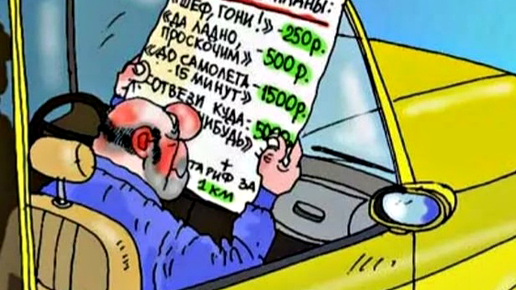 «ШЕФ, ГОНИ!» - 250 Р.
«ДА ЛАДНО,
ПРОСКОЧИМ» - 500 Р.
«ДО САМОЛЕТА -
15 МИНУТ» - 1500 Р.
ОТВЕЗИ КУДА-
НИБУДЬ»
+
ТАРИФ ЗА
1 КМ